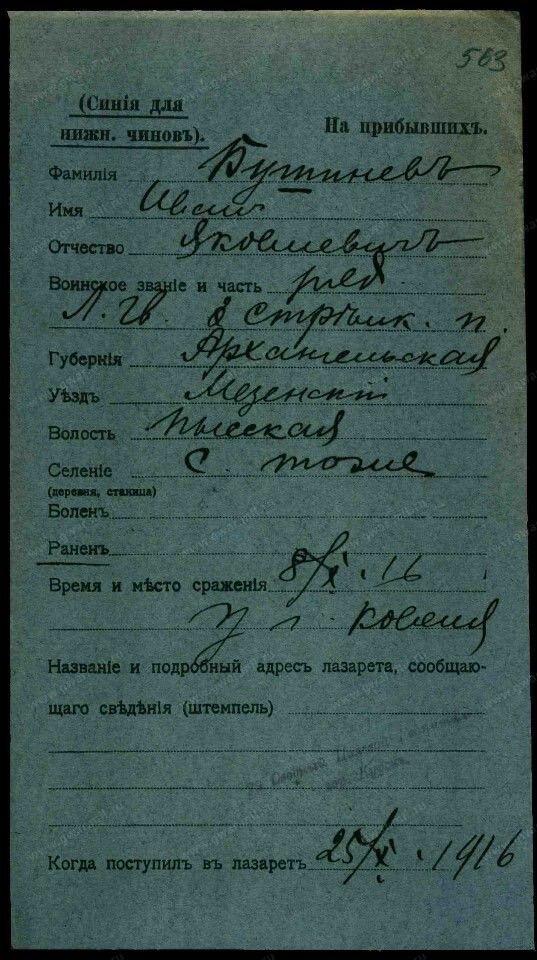 563
(Синія для
нижн. чиновъ).
На прибывшихъ.
Фамилія Бутиневъ
Имя Иван
Отчество Яковлевичъ
Воинское званіе и часть ряд.
Л. гв. 2 стрѣлк. п.
Губернія Архангельская
Уѣздъ Мезенскій
Волость Пысская
Селеніе С. тоже
(деревня, станица)
Боленъ
Раненъ
Время и мѣсто сраженія 8/X. 16
У г. Ковеля
Названіе и подробный адресъ лазарета, сообщаю-
щаго свѣдѣнія (штемпель)
Сводный
гор. Курскъ
Когда поступилъ въ лазаретъ 25/X. 1916